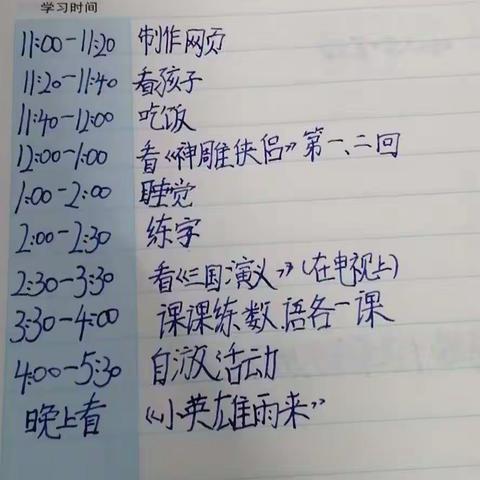 学习时间
11:00-11:20 制作网页
11:20-11:40 看孩子
11:40-12:00 吃饭
12:00-1:00 看《神雕侠侣》第一、二回
1:00-2:00 睡觉
2:00-2:30 练字
2:30-3:30 看《三国演义》(在电视上)
3:30-4:00 课课练数、语各一课
4:00-5:30 自放活动
晚上看 《小英雄雨来》